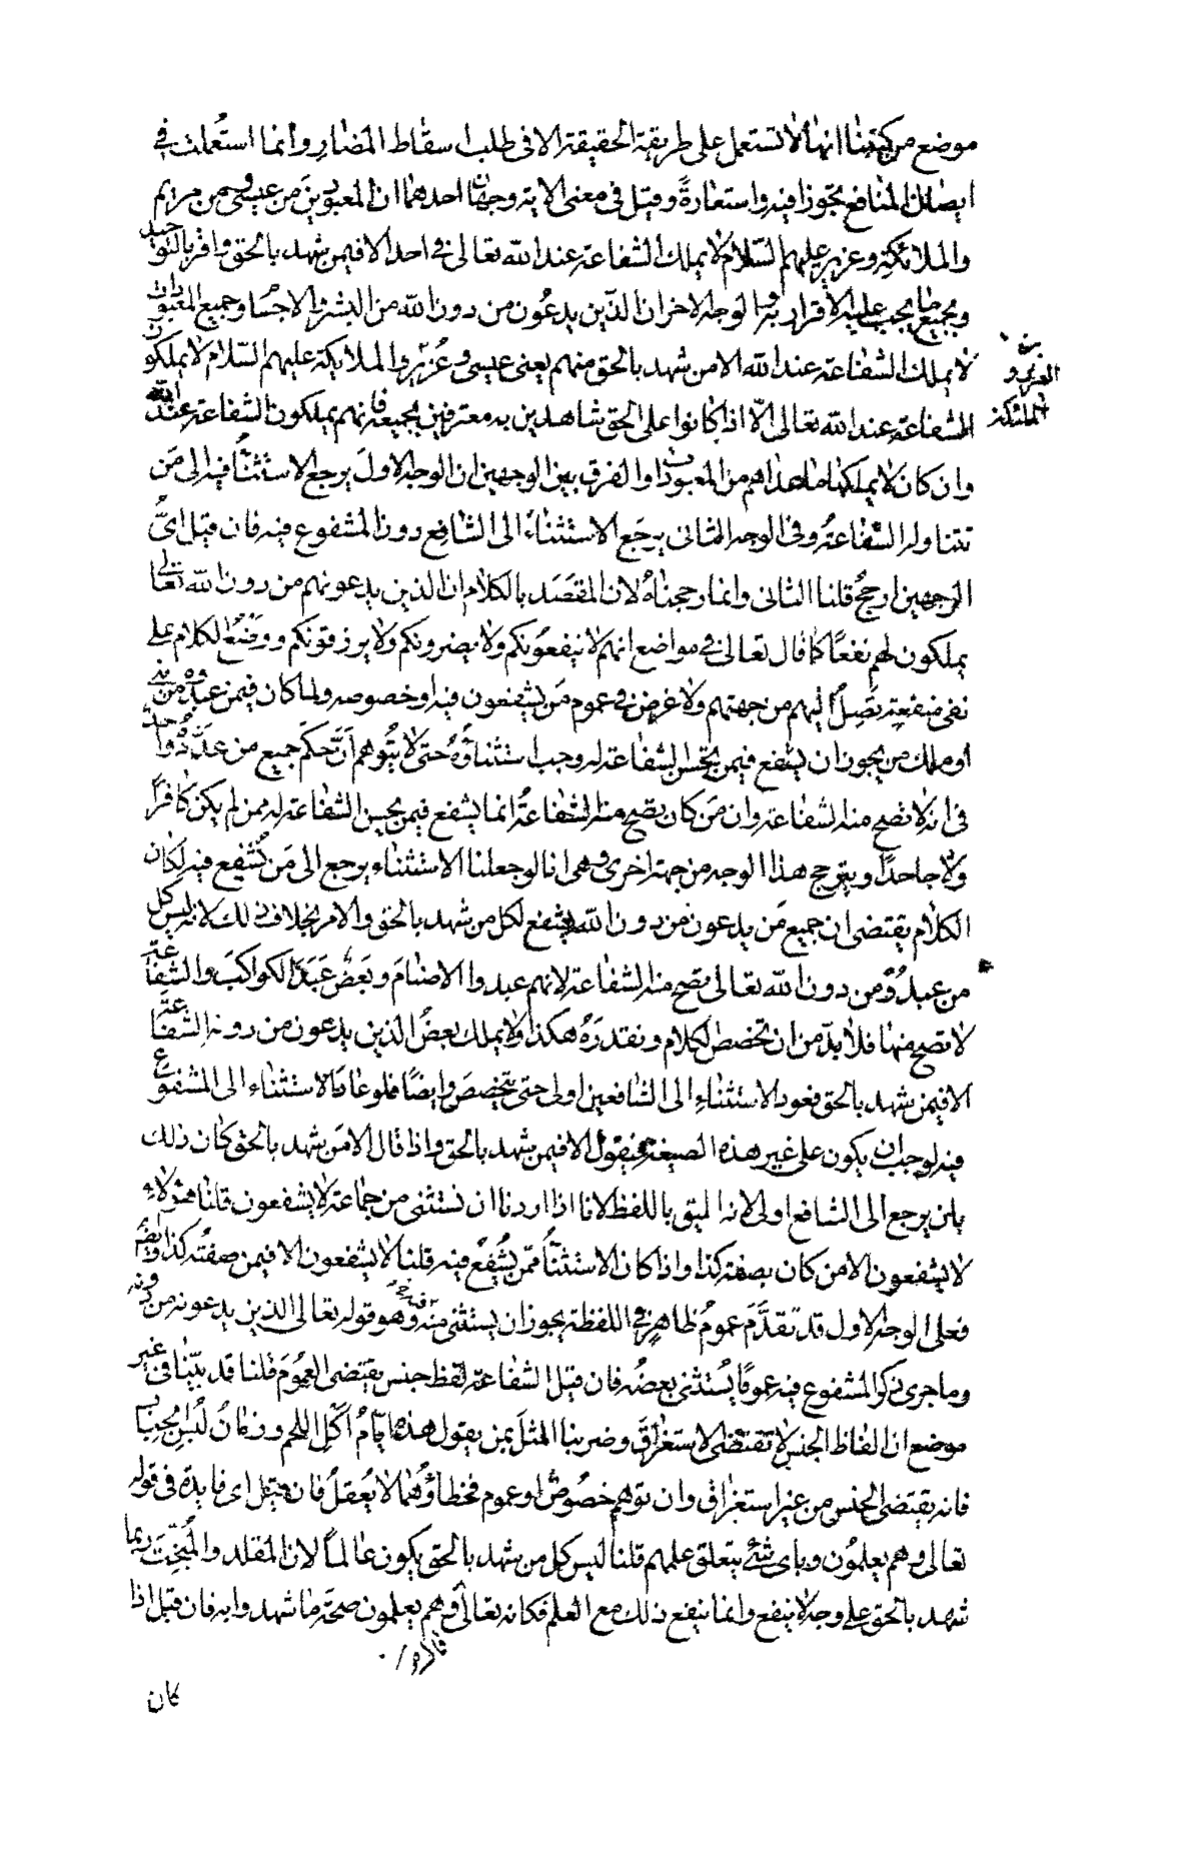 موضع من كتبنا انها لا تستعمل على طريقة الحقيقة الا فى طلب اسقاط المضار وانما استُعملت فى
ايصال المنافع تجوزا فيه واستعارةً وقيل فى معنى الاية وجهان احدهما ان المعبودين من عيسى بن مريم
والملائكة وعزير عليهم السّلام لا يملك الشفاعة عند الله تعالى فى احد الا فيمن شهد بالحق واقر بالتوحيد
وبجميع ما يجب عليه الاقرار به والوجه الاخر ان الذّين يدعُون من دون الله من البشر والاجسام وجميع المعبودات
لا يملك الشفاعة عند الله الا من شهد بالحق منهم يعنى عيسى وعُزير والملايكة عليهم السّلام لا يملكون
الشفاعة عند الله تعالى الّا اذا كانوا على الحق شاهدين به معترفين بجميعه فانهم يملكون الشفاعة عند الله
وان كان لا يملكها ما عداهم من المعبودات والفرق بين الوجهين ان الوجه الاولَ يرجع الاستثنآء فيه الى مَن
تتناوله الشفاعة وفى الوجه الثانى يرجَع الاستثناءُ الى الشافِع دون المشفوع فيه فان قيل اىُّ
الوجهين ارجحُ قلنا الثانى وانما رجحناهُ لان المقصَد بالكلام ان الذين يدعونهم من دون الله تعالى لا
يملكون لهم نفعًا كما قال تعالى فى مواضع انهم لا ينفعُونكم ولا يضرونكم ولا يرزقونكم ووضعُ الكلام على
نفى منفعةٍ تَصِلُ اليهم من جهتهم ولا غرض فى عموم مَن يشفعون فيه او خصوصه ولما كان فيمن عبدوه من نبى
او ملك من يجوز ان يشفع فيمن تحسُن الشفاعة له وجب استثناؤهُ حتى لا يُتوهم اَنّ حكمَ جميع من عدَّدُوا
فى انه لا تصح منه الشفاعة وان مَن كان تصح منه الشفاعةُ انما يشفع فيمن يحسن الشفاعة له ممن لم يكن كافرًا
ولا جاحدًا ويترجح هذا الوجه من جهة اخرى وهى انا لو جعلنا الاستثناء يرجع الى مَن تُشفع فيه لكان
الكلام يقتضى ان جميع مَن يدعون من دون الله يشفع لكل من شهد بالحق والامر بخلاف ذلك لانه ليس كل
من عبدُوه من دون الله تعالى تصح منه الشفاعة لانهم عبدوا الاصنامَ وبَعضٌ عَبَدَ الكواكبَ والشفاعة
لا تصح منها فلا بدّ من ان تخصص الكلام ونقدرَهُ هكذا ولا يملك بعضُ الذين يدعون من دونه الشفاعة
الا فيمن شهد بالحق فعود الاستثناءِ الى الشافعين اولى حتى يتخصصَ وايضًا فلو عادَ الاستثناء الى المشفوع
فيه لوجب ان يكون على غير هذه الصيغة فيقول الا فيمن شهد بالحق واذا قال الا مَن شهد بالحق كان ذلك
بان يرجع الى الشافع اولى لانه اليق باللفظ لانا اذا اردنا ان نستثنى من جماعة لا يشفعون قلنا هؤلاءِ
لا يشفعون الا من كان بصفة كذا واذا كان الاستثنآءُ ممّن يُشفع فيه قلنا لا يشفعون الا فيمن صفتُه كذا وايضًا
فعلى الوجه الاول قد تقدَّمَ عمومٌ ظاهرٌ فى اللفظة يجوز ان يستثنى منه وهو قوله تعالى الذين يدعون من دونه
وما جرى ذكر المشفوع فيه عمومًا يُستثنى بعضُه فان قيل الشفاعة لفظ جنس يقتضى العمُومَ قلنا قد بيّنا فى غير
موضع ان الفاظ الجنس لا تقتضى الاستغراقَ وضربنا المثلَ بمن يقول هذه ايّامُ اَكلِ اللحم وزمانُ لُبسِ الجباب
فانه يقتضى الجنس من غير استغراق وان توهم خصُوصٌ او عموم فخطاؤهُما لا يُعقلُ فان قيل اى فايدة فى قوله
تعالى وهم يعلمُون وباى شئ يتعلق علمهم قلنا ليس كل من شهد بالحق يكون عالماً لان المقلد والمُبَخِّتَ ربما
شهد بالحق على وجه لا ينفع وانما ينفع ذلك مع العلم فكانه تعالى قال وهم يعلمون صحة ما شهدوا به فان قيل اذا
كان